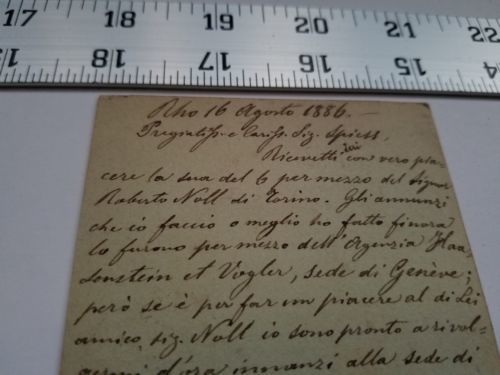 17 18 19 20 21 22
18 17 16 15 14
Rho 16 Agosto 1886.—
Pregiatiss. e Cariss. Sig. Spiess,
Ricevetti con vero pia-
cere la sua del 6 per mezzo del Signor
Roberto Noll di Torino. Gli annunzi
che io faccio o meglio ho fatto finora
lo furono per mezzo dell'Agenzia Haa-
senstein et Vogler, sede di Genève;
però se è per far un piacere al di Lei
amico, sig. Noll io sono pronto a rivol-
germi d'ora innanzi alla sede di